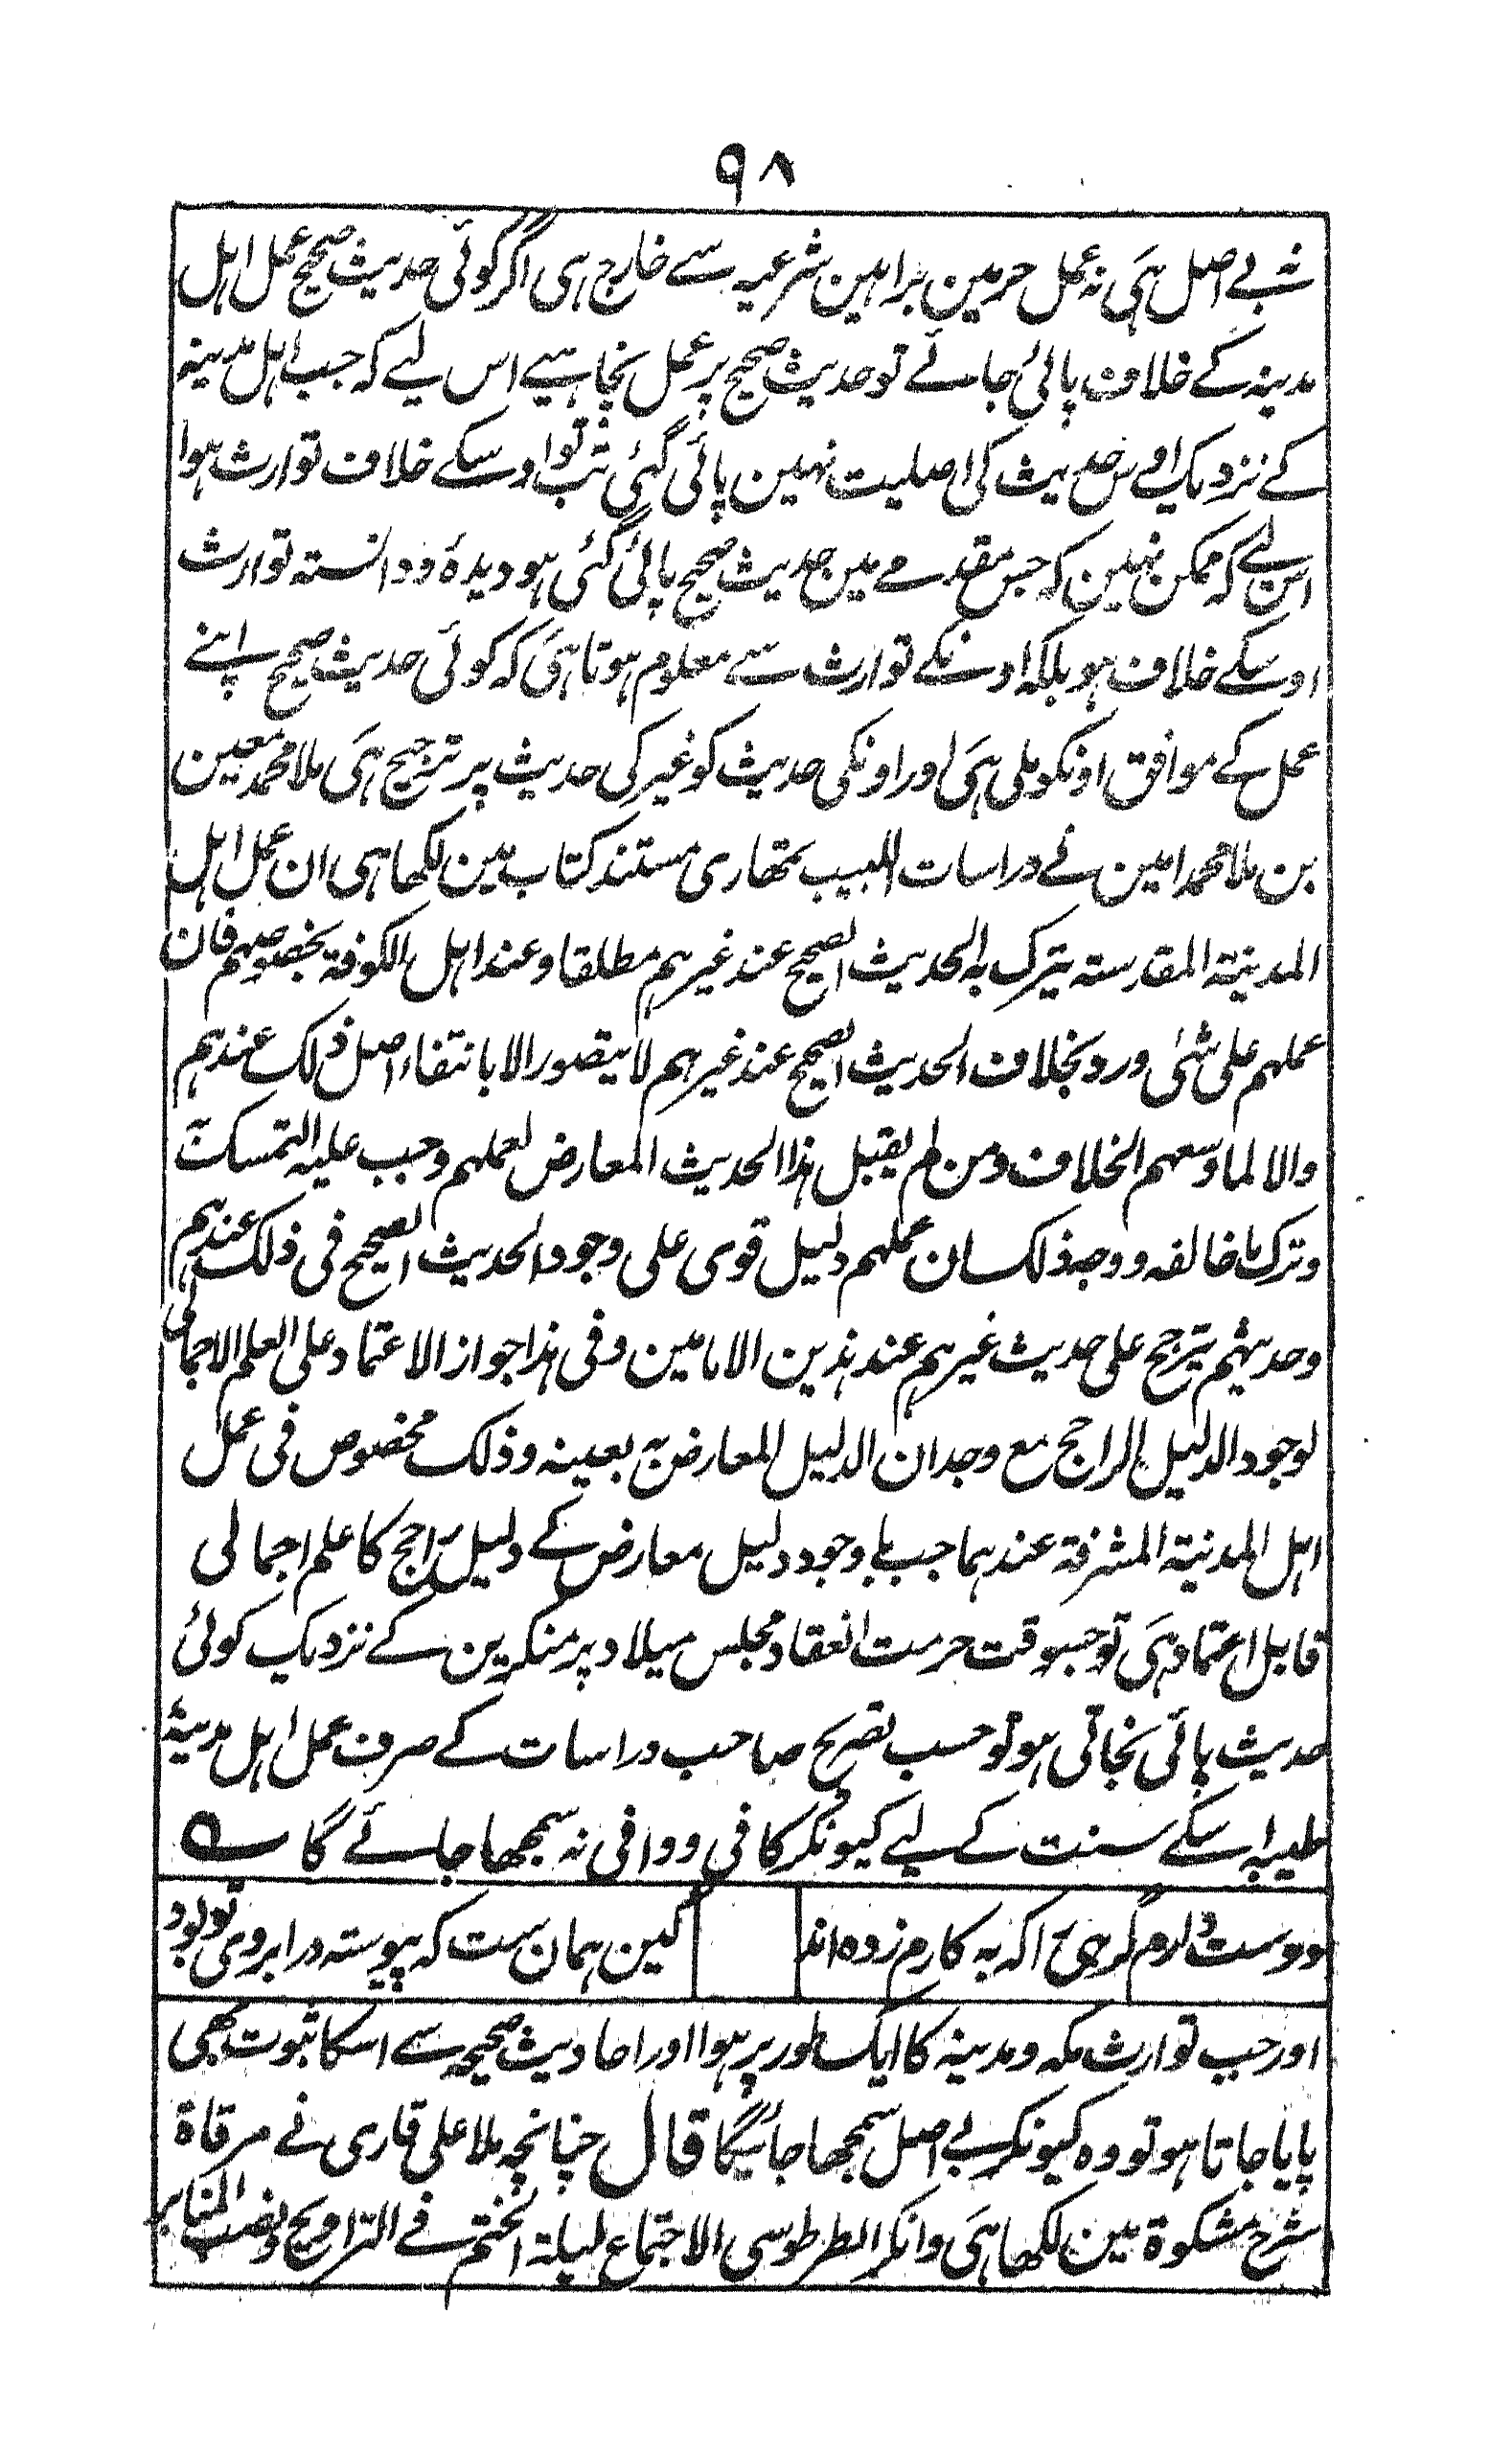 ۹۸
نہ بے اصل ہی نہ عمل حرمین براہین شرعیہ سے خارج ہی اگر کوئی حدیث صحیح عمل اہل
مدینہ کے خلاف پائی جائے تو حدیث صحیح پر عمل نچاہیے اس لیے کہ جب اہل مدینہ
کے نزدیک اوس حدیث کی اصلیت نہین پائی گئی تب تو اوسکے خلاف توارث ہوا
اس لیے کہ ممکن نہین کہ جس مقدمے مین حدیث صحیح پائی گئی ہو دیدہ و دانستہ توارث
اوسکے خلاف ہو بلکہ اونکے توارث سے معلوم ہوتا ہی کہ کوئی حدیث صحیح اپنے
عمل کے موافق اونکو ملی ہی اور اونکی حدیث کو غیر کی حدیث پر ترجیح ہی ملا محمد معین
بن ملا محمد امین نے دراسات اللبیب تمھاری مستند کتاب مین لکھا ہی ان عمل اہل
المدینۃ المقدستہ یترک بہ الحدیث الصحیح عند غیرہم مطلقا و عند اہل الکوفۃ بخصوصہم فان
عملہم علی شئی ورد بخلاف الحدیث الصحیح عند غیرہم لا یتصور الا بانتفاء اصل ذلک عندہم
والا لما وسعہم الخلاف ومن لم یقبل ہذا الحدیث المعارض لعملہم وجب علیہ التمسک بہ
وترک ما خالفہ ووجہ ذلک ان عملہم دلیل قوی علی وجود الحدیث الصحیح فی ذلک عندہم
وحدیثہم یترجح علی حدیث غیرہم عند ہذین الامامین وفی ہذا جواز الاعتماد علی العلم الاجمالی
لوجود الدلیل الراجح مع وجدان الدلیل المعارض بہ بعینہ وذلک مخصوص فی عمل
اہل المدنیۃ المشرفۃ عندہما جب باوجود دلیل معارض کے دلیل راجح کا علم اجمالی
قابل اعتماد ہی تو جسوقت حرمت انعقاد مجلس میلاد پر منکرین کے نزدیک کوئی
حدیث پائی نجاتی ہو تو حسب تصریح صاحب دراسات کے صرف عمل اہل مدینۂ
طیبہ اسکے سنت کے لیے کیونکر کافی و وافی نہ سمجھا جائے گا ے
دوست دارم گرہی را کہ بہ کارم زدہ اند کین ہمان ست کہ پیوستہ در ابروی تو بود
اور جب توارث مکہ و مدینہ کا ایک طور پر ہوا اور احادیث صحیحہ سے اسکا ثبوت بھی
پایا جاتا ہو تو وہ کیونکر بے اصل سمجھا جائیگا قال چنانچہ ملا علی قاری نے مرقاۃ
شرح مشکوۃ مین لکھا ہی وانکر الطرطوسی الاجتماع لیلۃ الختم فے التراویح ونصب المنابر